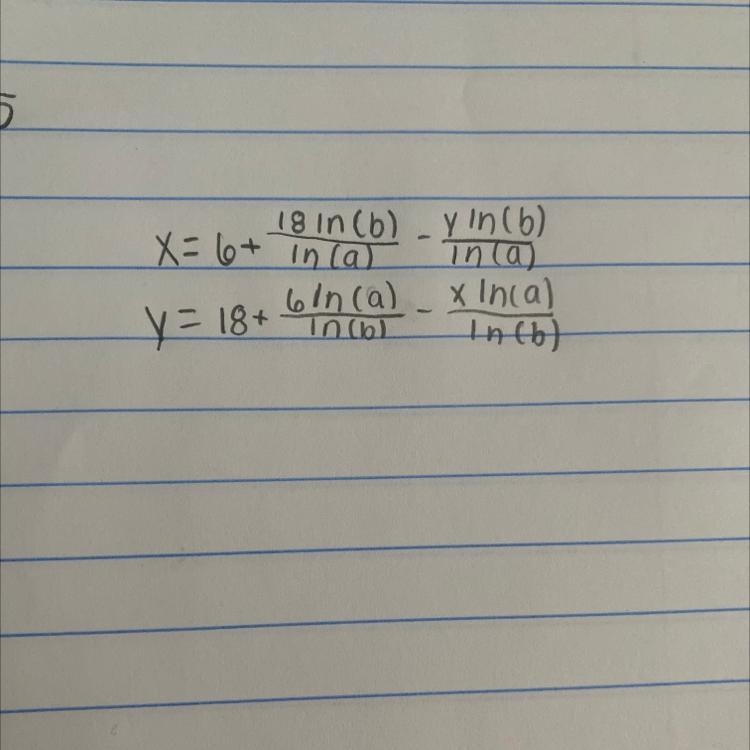 x = 6 + 18 ln(b)/ln(a) - y ln(b)/ln(a)
y = 18 + 6 ln(a)/ln(b) - x ln(a)/ln(b)